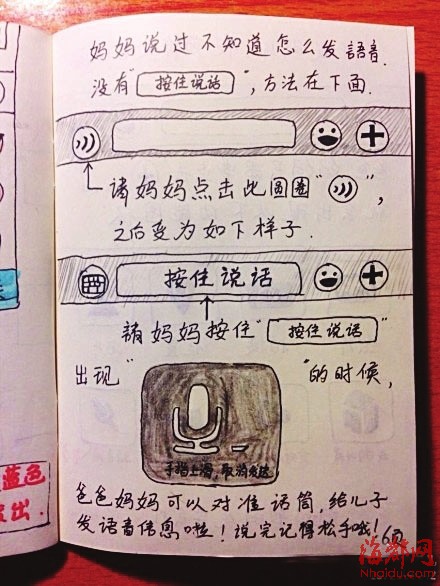 妈妈说过不知道怎么发語音.
没有"按住说话",方法在下面.
请妈妈点击此圆圈"",
之后变为如下样子.
按住说话
請妈妈按住"按住说话"
出现""的时候,
手指上滑,取消发送
爸爸妈妈可以对准话筒,给儿子
发语音信息啦!说完记得松手哦!
蓝色
出.
海都网
Nhaidu.com